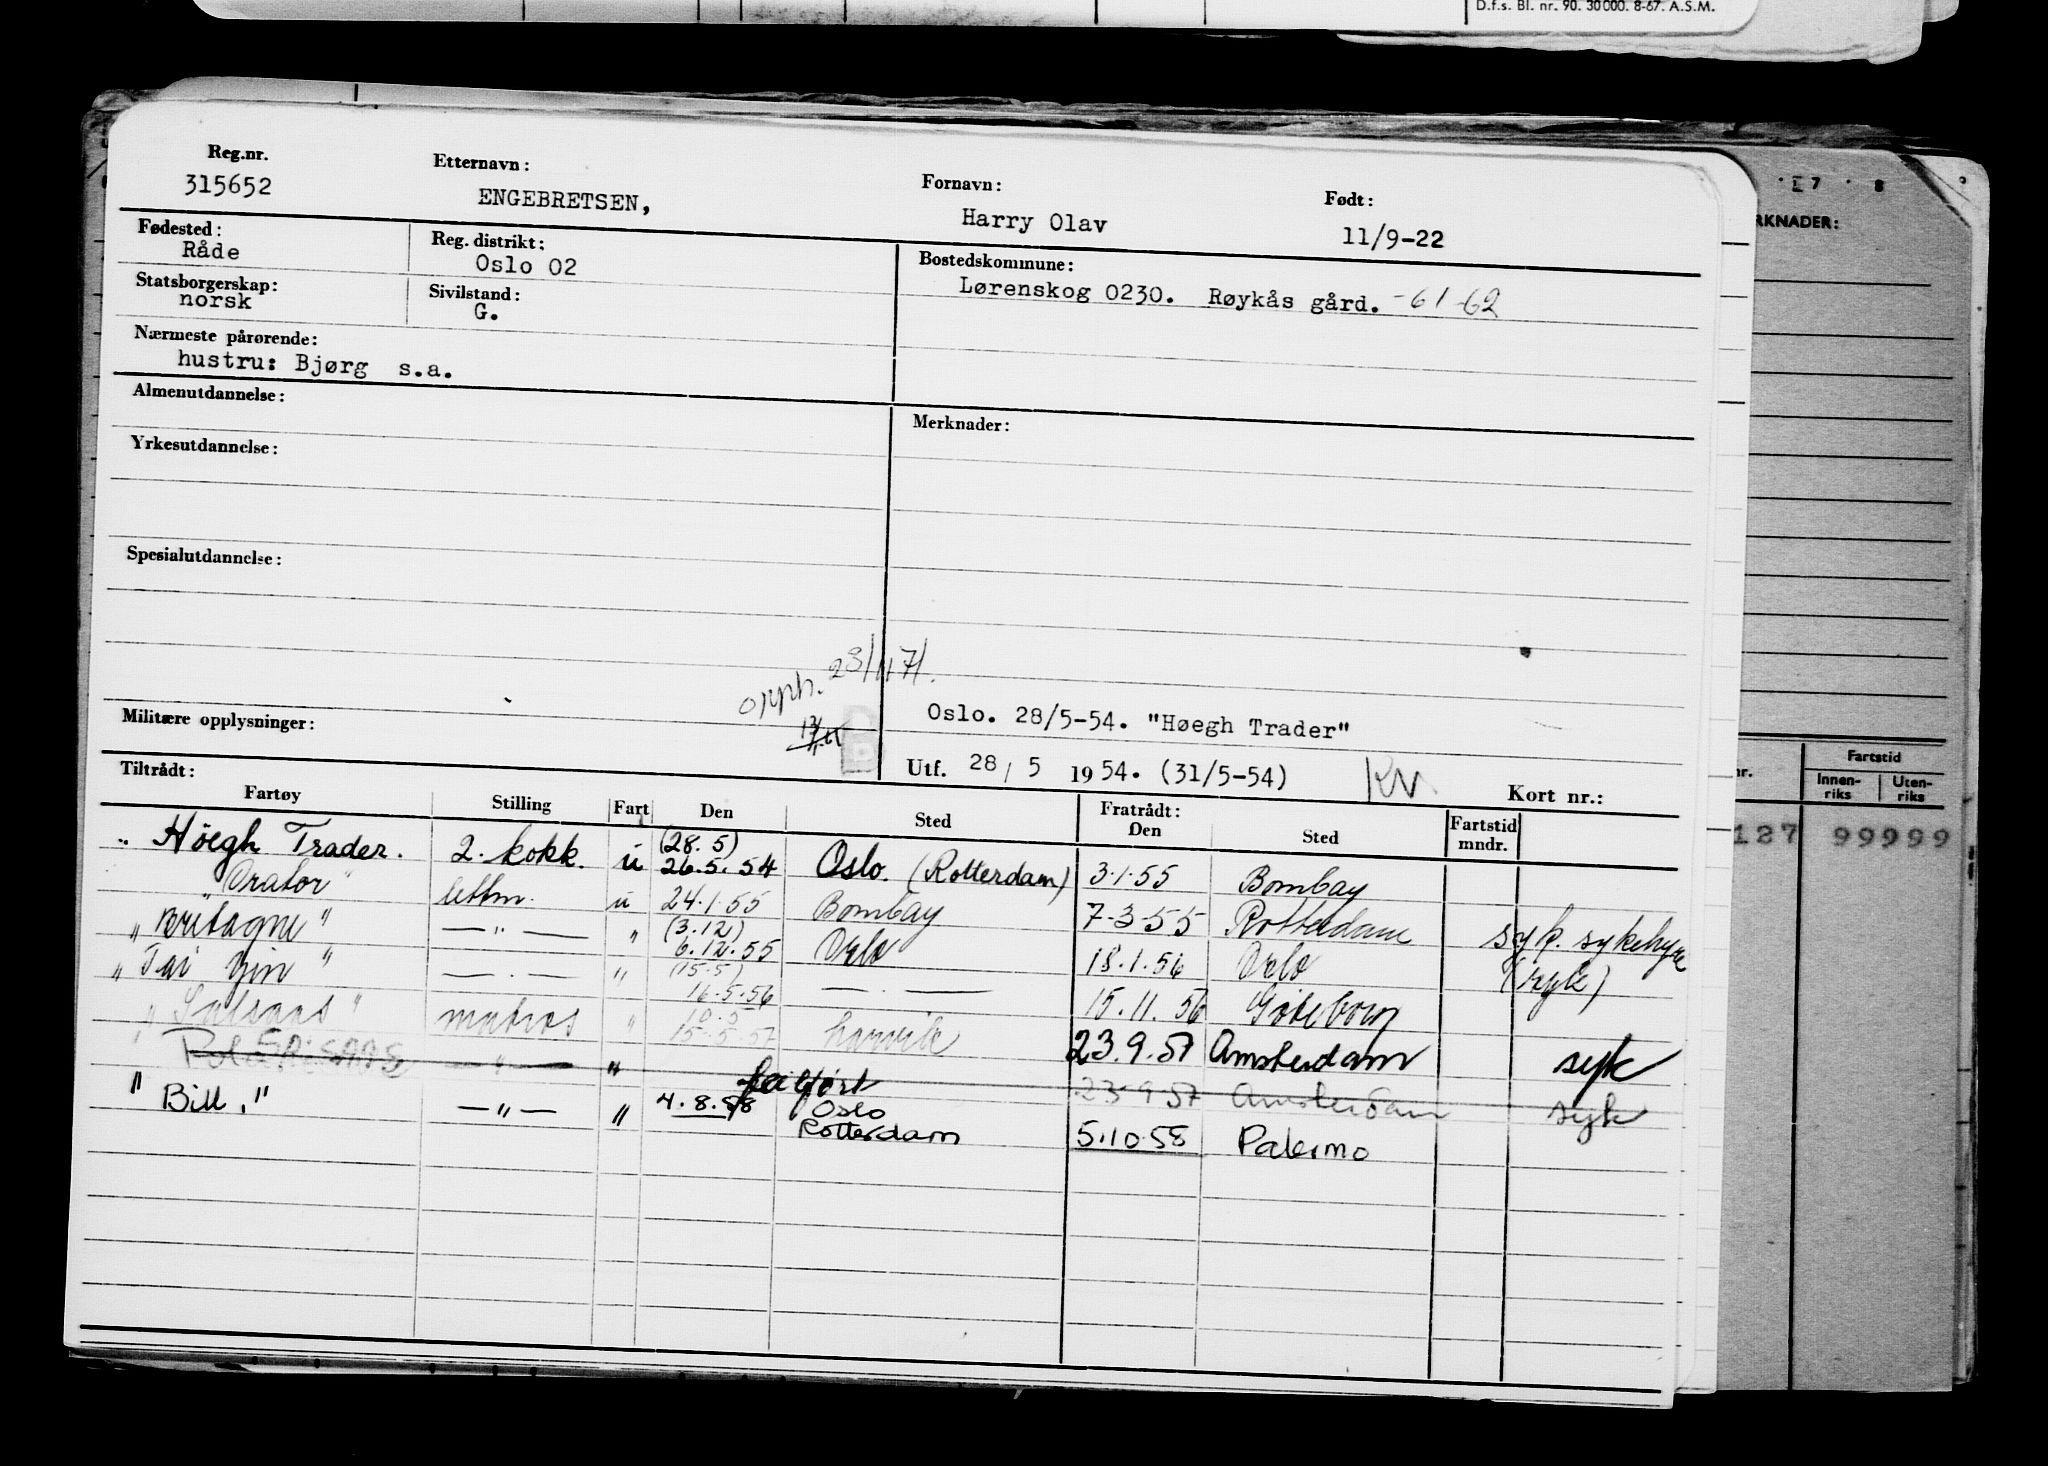 D.f.s. Bl. nr. 90. 30000. 8-67. A.S.M.
Reg.nr. Etternavn: Fornavn: Født:
315652 ENGEBRETSEN, Harry Olav 11/9-22
Fødested: Reg. distrikt: Bostedskommune:
Råde Oslo 02 Lørenskog 0230. Røykås gård. -61-62
Statsborgerskap: Sivilstand:
norsk G.
Nærmeste pårørende:
hustru: Bjørg s.a.
Almenutdannelse: Merknader:
Yrkesutdannelse:
Spesialutdannelse:
Militære opplysninger:
Oslo. 28/5-54. "Høegh Trader"
Utf. 28/5 1954. (31/5-54) Kort nr.:
Tiltrådt: Fratrådt:
Fartøy Stilling Fart Den Sted Den Sted Fartstid mndr.
(28.5)
" Höegh Trader. 2. kokk. u 26.5.54 Oslo. (Rotterdam) 3.1.55 Bombay
" lettm. u 24.1.55 Bombay 7-3-55 Rotterdam syk.
(3.12)
" Britagne " —"— " 6.12.55 Oslo 18.1.56 Oslo (syk)
(15.5)
" Tai Yin " —"— " 16.5.56 —"— 15.11.56 Göteborg
10.5
" " matros " 15.5.57 Narvik 23.9.57 Amsterdam syk
" —"— " feilført 23-9-57 Amsterdam syk
" Bill." —"— " 4.8.58 Oslo
Rotterdam 5.10.58 Palermo
RKNADER:
Fartstid
nr. Innen-riks Uten-riks
127 99999